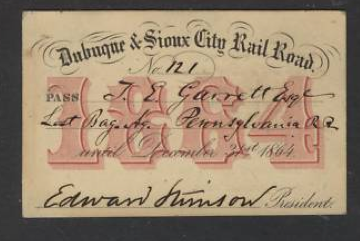 Dubuque & Sioux City Rail Road.
No 121
1864
PASS T. E. Garrett Esqr
Lost Bag. Ag. Pennsylvania R R
until December 31st 1864.
Edward Stimson President.